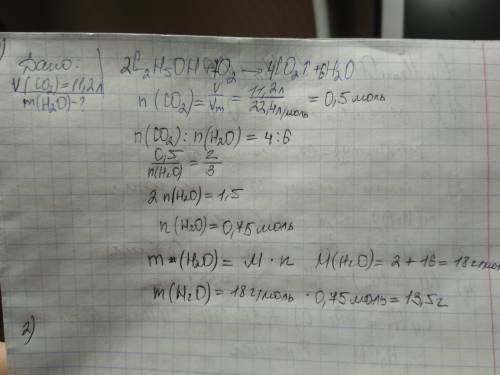 Дано:
V(CO₂)=11,2л
m(H₂O)-?
2C₂H₅OH+7O₂ → 4CO₂↑+6H₂O
n(CO₂)= V/Vm = 11,2л/22,4л/моль = 0,5 моль
n(CO₂):n(H₂O)=4:6
0,5/n(H₂O) = 2/3
2n(H₂O)=1,5
n(H₂O)=0,75моль
m(H₂O)= M·n M(H₂O)=2+16=18г/моль
m(H₂O)=18г/моль·0,75моль=13,5г
2)